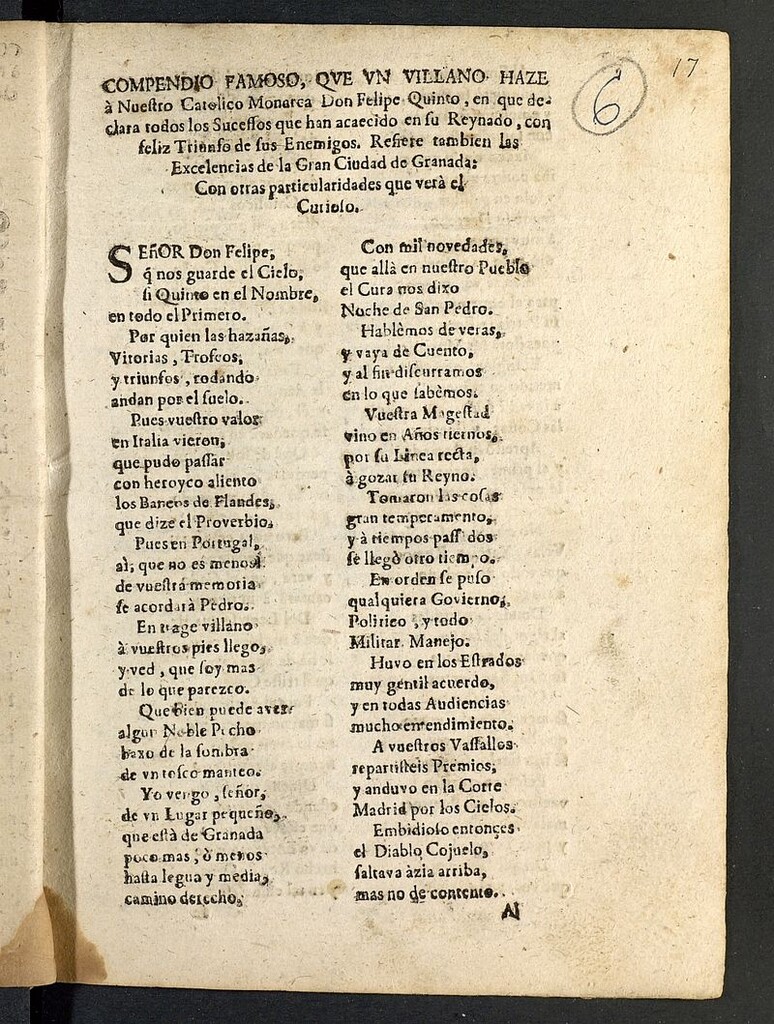 17
6
COMPENDIO FAMOSO, QVE VN VILLANO HAZE
à Nueſtro Catolico Monarca Don Felipe Quinto, en que de-
clara todos los Suceſſos que han acaecido en ſu Reynado, con
feliz Triunfo de ſus Enemigos. Refiere tambien las
Excelencias de la Gran Ciudad de Granada:
Con otras particularidades que verà el
Curioſo.
SEñOR Don Felipe,
q̃ nos guarde el Cielo,
ſi Quinto en el Nombre,
en todo el Primero.
Por quien las hazañas,
Vitorias, Trofeos,
y triunfos, rodando
andan por el ſuelo.
Pues vueſtro valor
en Italia vieron,
que pudo paſſar
con heroyco aliento
los Bancos de Flandes,
que dize el Proverbio.
Pues en Portugal,
al, que no es menos,
de vueſtra memoria
ſe acordarà Pedro.
En trage villano
à vueſtros pies llego,
y ved, que ſoy mas
de lo que parezco.
Que bien puede aver
algun Noble Pecho
baxo de la ſombra
de vn toſco manteo.
Yo vengo, ſeñor,
de vn Lugar pequeño,
que eſtà de Granada
poco mas, ò menos
haſta legua y media,
camino derecho,
Con mil novedades,
que allà en nueſtro Pueblo
el Cura nos dixo
Noche de San Pedro.
Hablèmos de veras,
y vaya de Cuento,
y al fin diſcurramos
en lo que ſabèmos.
Vueſtra Mageſtad
vino en Años tiernos,
por ſu Linea recta,
à gozar ſu Reyno.
Tomaron las coſas
gran temperamento,
y à tiempos paſſados
ſe llegò otro tiempo.
En orden ſe puſo
qualquiera Govierno,
Politico, y todo
Militar Manejo.
Huvo en los Eſtrados
muy gentil acuerdo,
y en todas Audiencias
mucho entendimiento.
A vueſtros Vaſſallos
repartiſteis Premios,
y anduvo en la Corte
Madrid por los Cielos.
Embidioſo entonces
el Diablo Cojuelo,
ſaltava àzia arriba,
mas no de contento.
Al